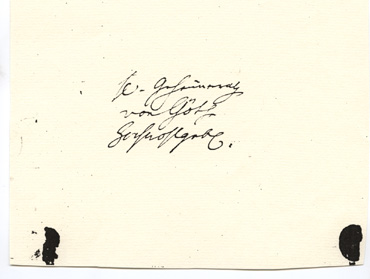 Geheimrath
von Göthe
Hochwohlgeb.